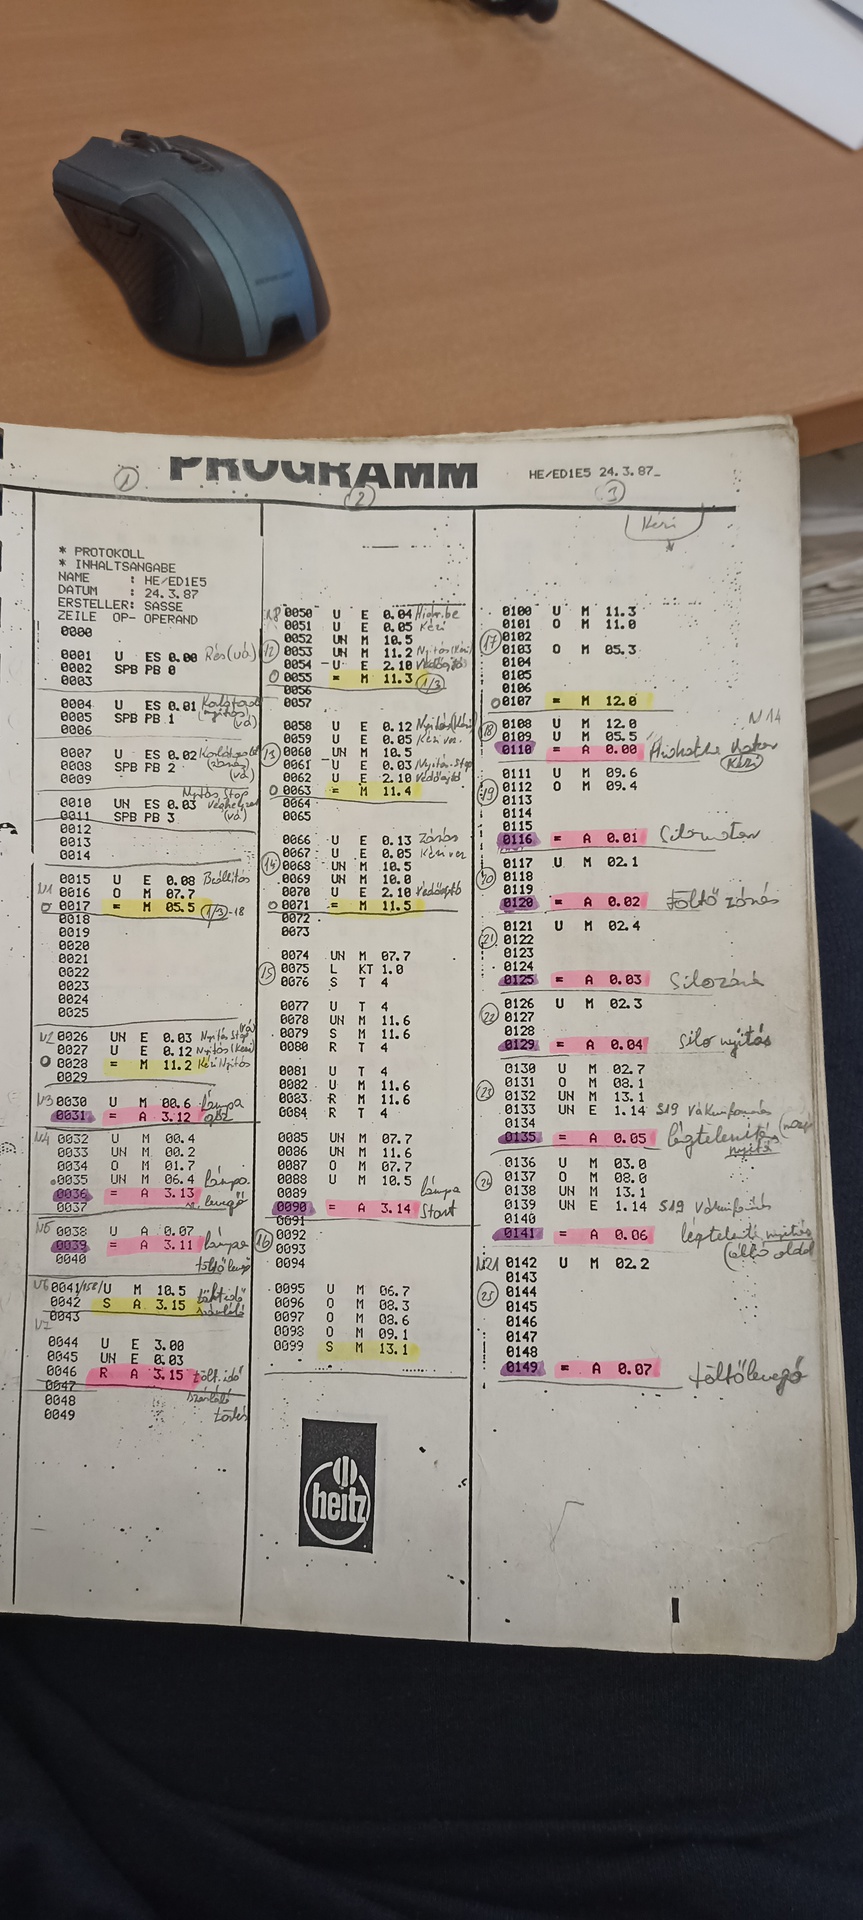 PROGRAMM
HE/ED1E5 24.3.87_
1
2
3
Kézi
* PROTOKOLL
* INHALTSANGABE
NAME : HE/ED1E5
DATUM : 24.3.87
ERSTELLER: SASSE
ZEILE OP- OPERAND
0000
0001 U ES 0.00 Rés (vá)
0002 SPB PB 0
0003
0004 U ES 0.01
0005 SPB PB 1
0006 (vá)
0007 U ES 0.02
0008 SPB PB 2
0009 (vá)
Nyitós Stop
0010 UN ES 0.03
0011 SPB PB 3 (vá)
0012
0013
0014
0015 U E 0.08 Beállítós
0016 O M 07.7
0017 = M 05.5 1/3-18
0018
0019
0020
0021
0022
0023
0024
0025
0026 UN E 0.03 Nyitós Stop
0027 U E 0.12 Nyitós (Kézi)
0028 = M 11.2 Kézi Nyitós
0029
N3 0030 U M 00.6 lámpa
0031 = A 3.12
N4 0032 U M 00.4
0033 UN M 00.2
0034 O M 01.7
0035 UN M 06.4 lámpa
0036 = A 3.13
0037
N5 0038 U A 0.07
0039 = A 3.11 lámpa
0040 töltőlevegő
N6 0041 U M 10.5 töltidő
0042 S A 3.15 számláló
0043
N7
0044 U E 3.00
0045 UN E 0.03
0046 R A 3.15 tölt.idő
0047 számláló
0048
0049 törlés
0050 U E 0.04
0051 U E 0.05 Kézi
0052 UN M 10.5
12 0053 UN M 11.2 Nyitós (Kézi)
0054 U E 2.10 Védőajtó
0055 = M 11.3 1/3
0056
0057
0058 U E 0.12 Nyitós (Kézi)
0059 U E 0.05 Kézi ver.
13 0060 UN M 10.5
0061 U E 0.03 Nyitós Stop
0062 U E 2.10 Védőajtó
0063 = M 11.4
0064
0065
0066 U E 0.13 Zórós
0067 U E 0.05 Kézi ver
14 0068 UN M 10.5
0069 UN M 10.0
0070 U E 2.10 Védőajtó
0071 = M 11.5
0072
0073
0074 UN M 07.7
15 0075 L KT 1.0
0076 S T 4
0077 U T 4
0078 UN M 11.6
0079 S M 11.6
0080 R T 4
0081 U T 4
0082 U M 11.6
0083 R M 11.6
0084 R T 4
0085 UN M 07.7
0086 UN M 11.6
0087 O M 07.7
0088 U M 10.5
0089 lámpa
0090 = A 3.14 Start
0091
16 0092
0093
0094
0095 U M 06.7
0096 O M 08.3
0097 O M 08.6
0098 O M 09.1
0099 S M 13.1
heitz
0100 U M 11.3
0101 O M 11.0
17 0102
0103 O M 05.3
0104
0105
0106
0107 = M 12.0
N14
18 0108 U M 12.0
0109 U M 05.5
0110 = A 0.00
(Kézi)
0111 U M 09.6
19 0112 O M 09.4
0113
0114
0115
0116 = A 0.01 Silomotor
0117 U M 02.1
20 0118
0119
0120 = A 0.02 Töltő zórós
0121 U M 02.4
21 0122
0123
0124
0125 = A 0.03 Silozórós
0126 U M 02.3
22 0127
0128
0129 = A 0.04 Silo nyitós
0130 U M 02.7
0131 O M 08.1
23 0132 UN M 13.1
0133 UN E 1.14 S19 Vákuumformázás
0134
0135 = A 0.05 légtelenítés
0136 U M 03.0
24 0137 O M 08.0
0138 UN M 13.1
0139 UN E 1.14 S19 Vákuumformázás
0140
0141 = A 0.06 légtelenítő nyitós
(álló oldal
N21 0142 U M 02.2
0143
25 0144
0145
0146
0147
0148
0149 = A 0.07 töltőlevegő